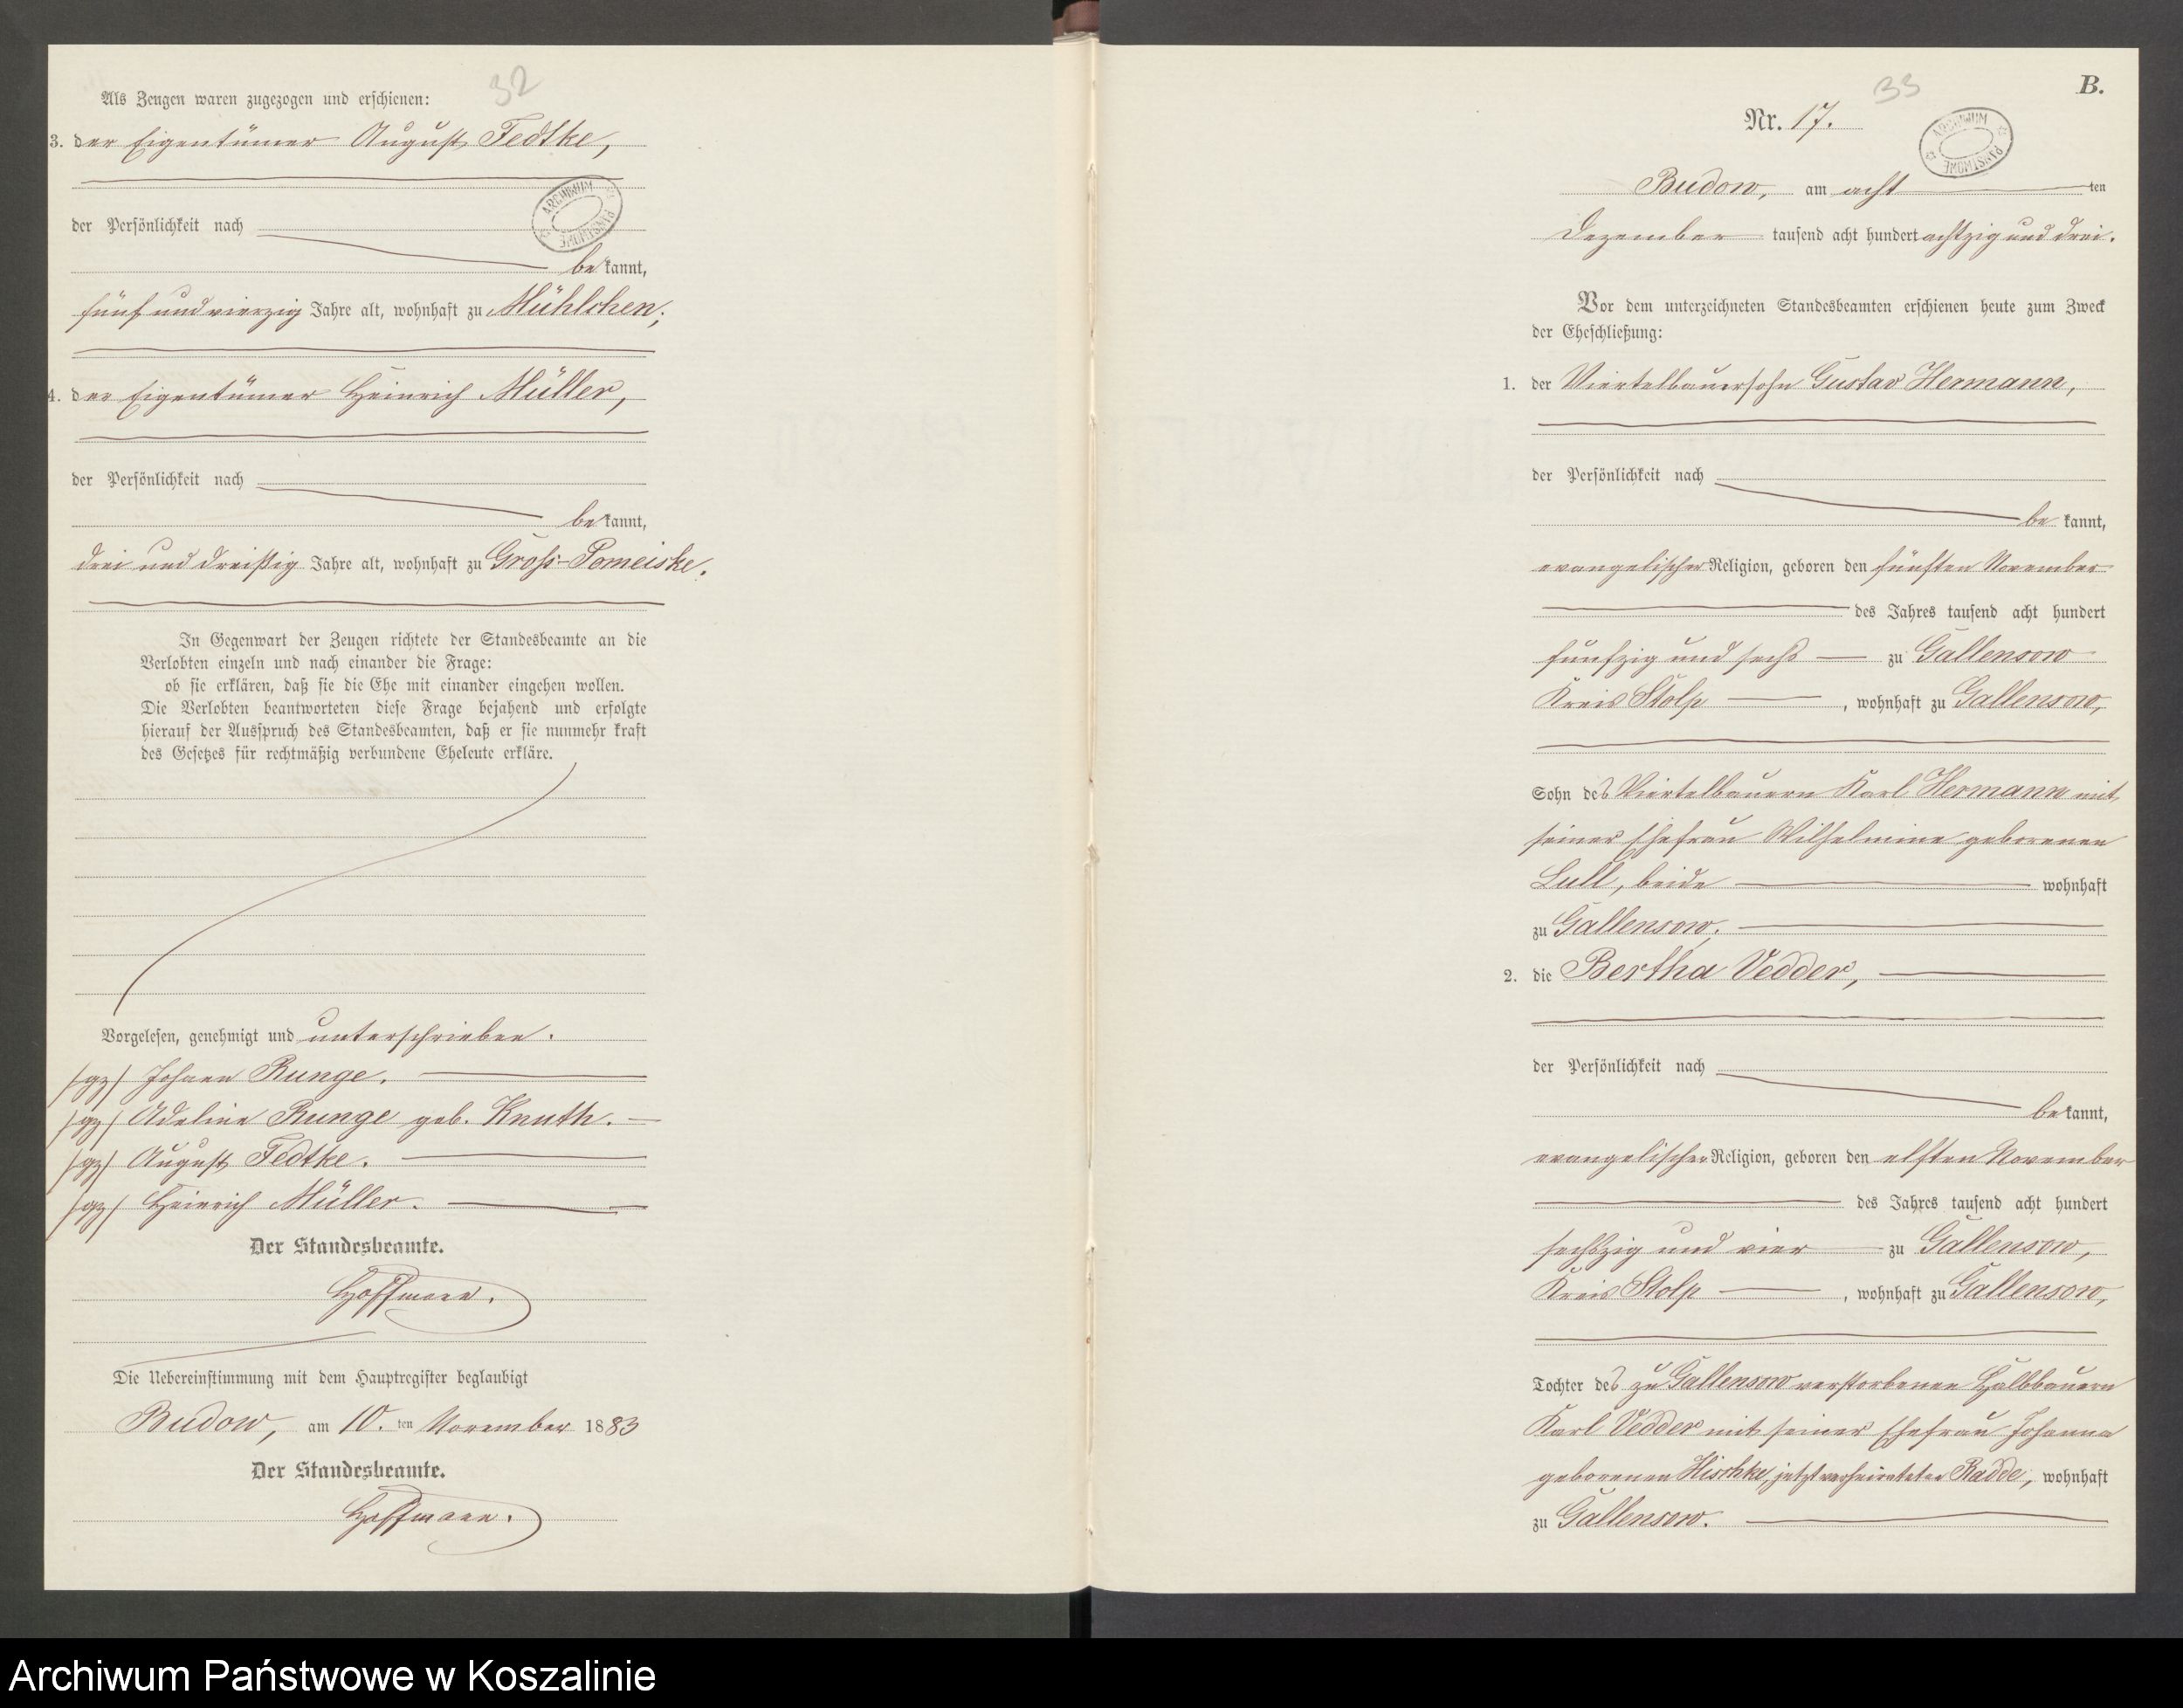 32
Als Zeugen waren zugezogen und erschienen:
3. der Eigentümer August Fedtke,
ARCHIWUM PAŃSTWOWE
der Persönlichkeit nach
bekannt,
fünf und vierzig Jahre alt, wohnhaft zu Mühlchen;
4. der Eigentümer Heinrich Müller,
der Persönlichkeit nach
bekannt,
drei und dreißig Jahre alt, wohnhaft zu Gross-Pomeiske.
In Gegenwart der Zeugen richtete der Standesbeamte an die
Verlobten einzeln und nach einander die Frage:
ob sie erklären, daß sie die Ehe mit einander eingehen wollen.
Die Verlobten beantworteten diese Frage bejahend und erfolgte
hierauf der Ausspruch des Standesbeamten, daß er sie nunmehr kraft
des Gesetzes für rechtmäßig verbundene Eheleute erkläre.
Vorgelesen, genehmigt und unterschrieben.
/gz/ Johann Runge.
/gz/ Adeline Runge geb. Knuth.
/gz/ August Fedtke.
/gz/ Heinrich Müller.
Der Standesbeamte.
Hoffmann.
Die Uebereinstimmung mit dem Hauptregister beglaubigt
Budow, am 10. ten November 1883
Der Standesbeamte.
Hoffmann.
33
B.
Nr. 17.
ARCHIWUM PAŃSTWOWE
Budow, am acht ten
Dezember tausend acht hundert achtzig und drei.
Vor dem unterzeichneten Standesbeamten erschienen heute zum Zweck
der Eheschließung:
1. der Viertelbauersohn Gustav Hermann,
der Persönlichkeit nach
bekannt,
evangelischer Religion, geboren den fünften November
des Jahres tausend acht hundert
fünfzig und sechs zu Gallensow
Kreis Stolp, wohnhaft zu Gallensow,
Sohn des Viertelbauern Karl Hermann mit
seiner Ehefrau Wilhelmine geborenen
Lull, beide wohnhaft
zu Gallensow.
2. die Bertha Vedder,
der Persönlichkeit nach
bekannt,
evangelischer Religion, geboren den elften November
des Jahres tausend acht hundert
sechszig und vier zu Gallensow,
Kreis Stolp, wohnhaft zu Gallensow,
Tochter des zu Gallensow verstorbenen Halbbauern
Karl Vedder mit seiner Ehefrau Johanna
geborenen Hischke, jetzt verheirateter Radde, wohnhaft
zu Gallensow.
Archiwum Państwowe w Koszalinie